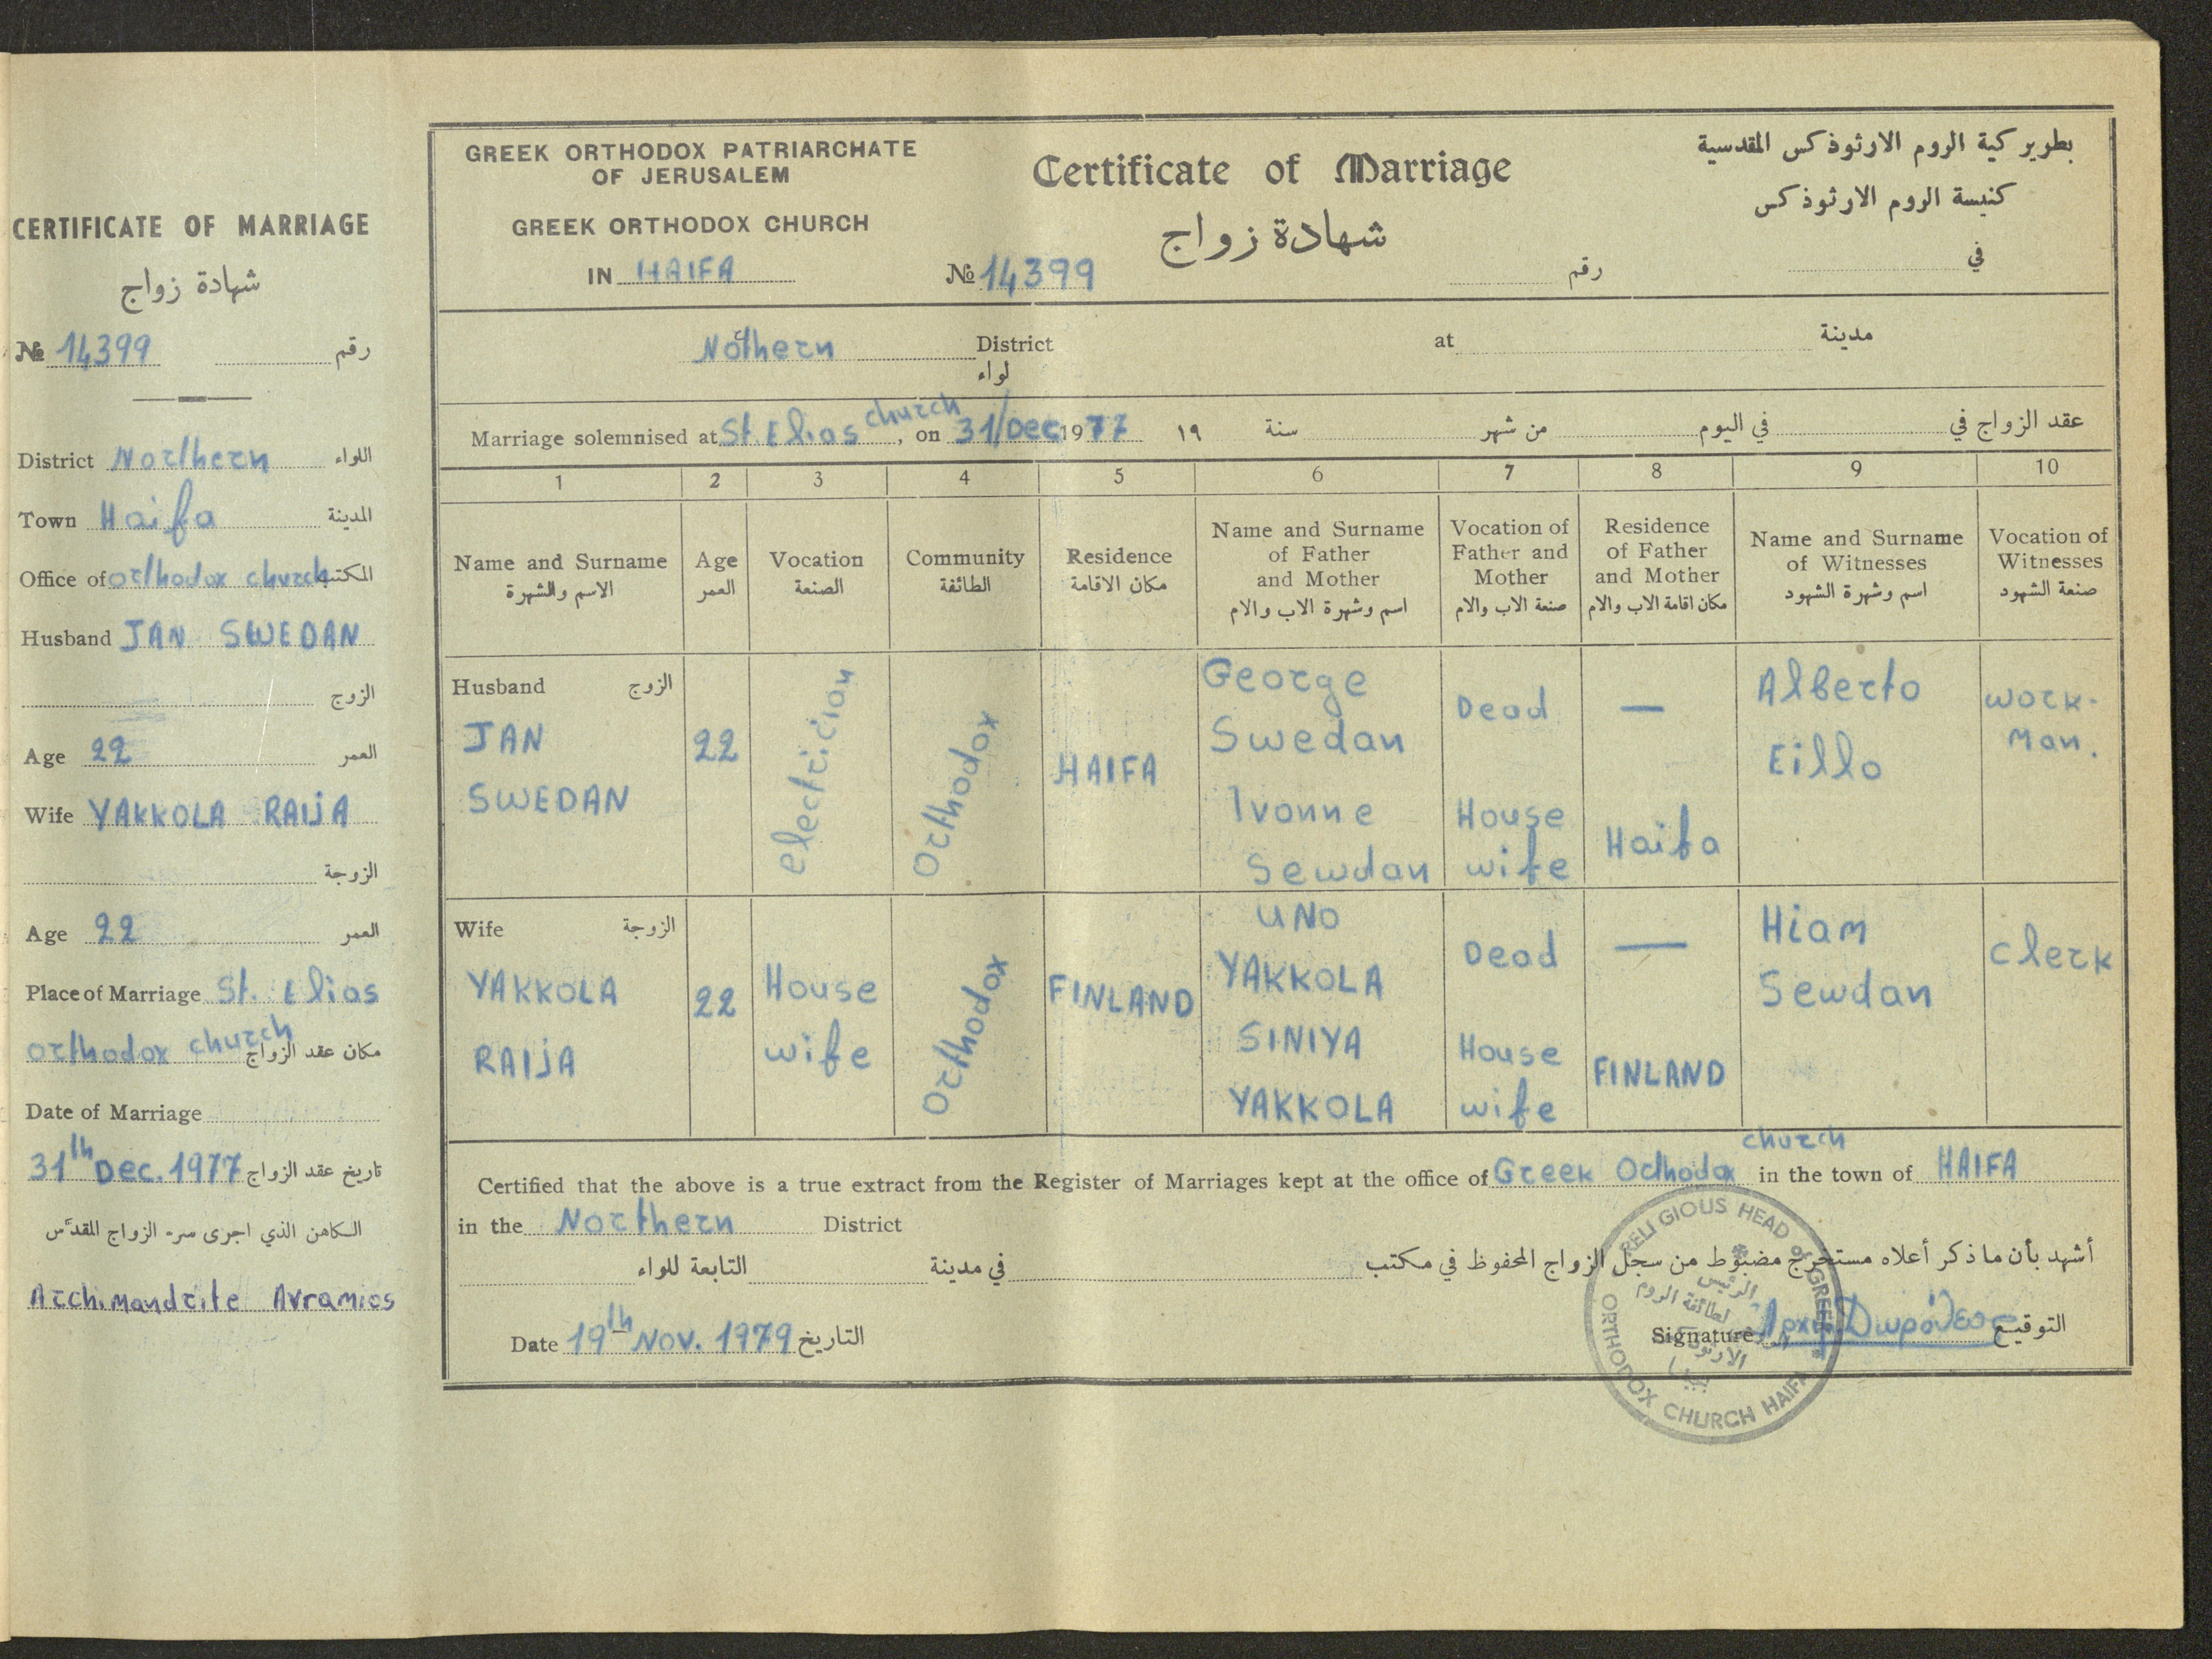 CERTIFICATE OF MARRIAGE
شهادة زواج
№ 14399 رقم
District Northern اللواء
Town Haifa المدينة
Office of orthodox church المكتب
Husband JAN SWEDAN
الزوج
Age 22 العمر
Wife YAKKOLA RAIJA
الزوجة
Age 22 العمر
Place of Marriage St. Elias
orthodox church مكان عقد الزواج
Date of Marriage
31th Dec. 1977 تاريخ عقد الزواج
الكاهن الذي اجرى سر الزواج المقدس
Archimandrite Avramios
GREEK ORTHODOX PATRIARCHATE
OF JERUSALEM
GREEK ORTHODOX CHURCH
IN HAIFA
Certificate of Marriage
شهادة زواج
№ 14399
رقم
بطريركية الروم الارثوذكس المقدسية
كنيسة الروم الارثوذكس
في
Nothern District at مدينة
لواء
Marriage solemnised at St. Elias church, on 31/Dec 1977 ١٩ سنة من شهر في اليوم عقد الزواج في
1 2 3 4 5 6 7 8 9 10
Name and Surname
الاسم والشهرة
Age
العمر
Vocation
الصنعة
Community
الطائفة
Residence
مكان الاقامة
Name and Surname
of Father
and Mother
اسم وشهرة الاب والام
Vocation of
Father and
Mother
صنعة الاب والام
Residence
of Father
and Mother
مكان اقامة الاب والام
Name and Surname
of Witnesses
اسم وشهرة الشهود
Vocation of
Witnesses
صنعة الشهود
Husband الزوج
JAN
SWEDAN
22
electrician
Orthodox
HAIFA
George
Swedan
Ivonne
Sewdan
Dead
House
wife
—
Haifa
Alberto
Eillo
work-
man.
Wife الزوجة
YAKKOLA
RAIJA
22
House
wife
Orthodox
FINLAND
UNO
YAKKOLA
SINIYA
YAKKOLA
Dead
House
wife
—
FINLAND
Hiam
Sewdan
clerk
Certified that the above is a true extract from the Register of Marriages kept at the office of Greek Othodox church in the town of HAIFA
in the Northern District
أشهد بأن ما ذكر أعلاه مستخرج مضبوط من سجل الزواج المحفوظ في مكتب في مدينة التابعة للواء
Date 19th Nov. 1979 التاريخ
Signature التوقيع
RELIGIOUS HEAD of GREEK
ORTHODOX CHURCH HAIFA
الرئيس
لطائفة الروم